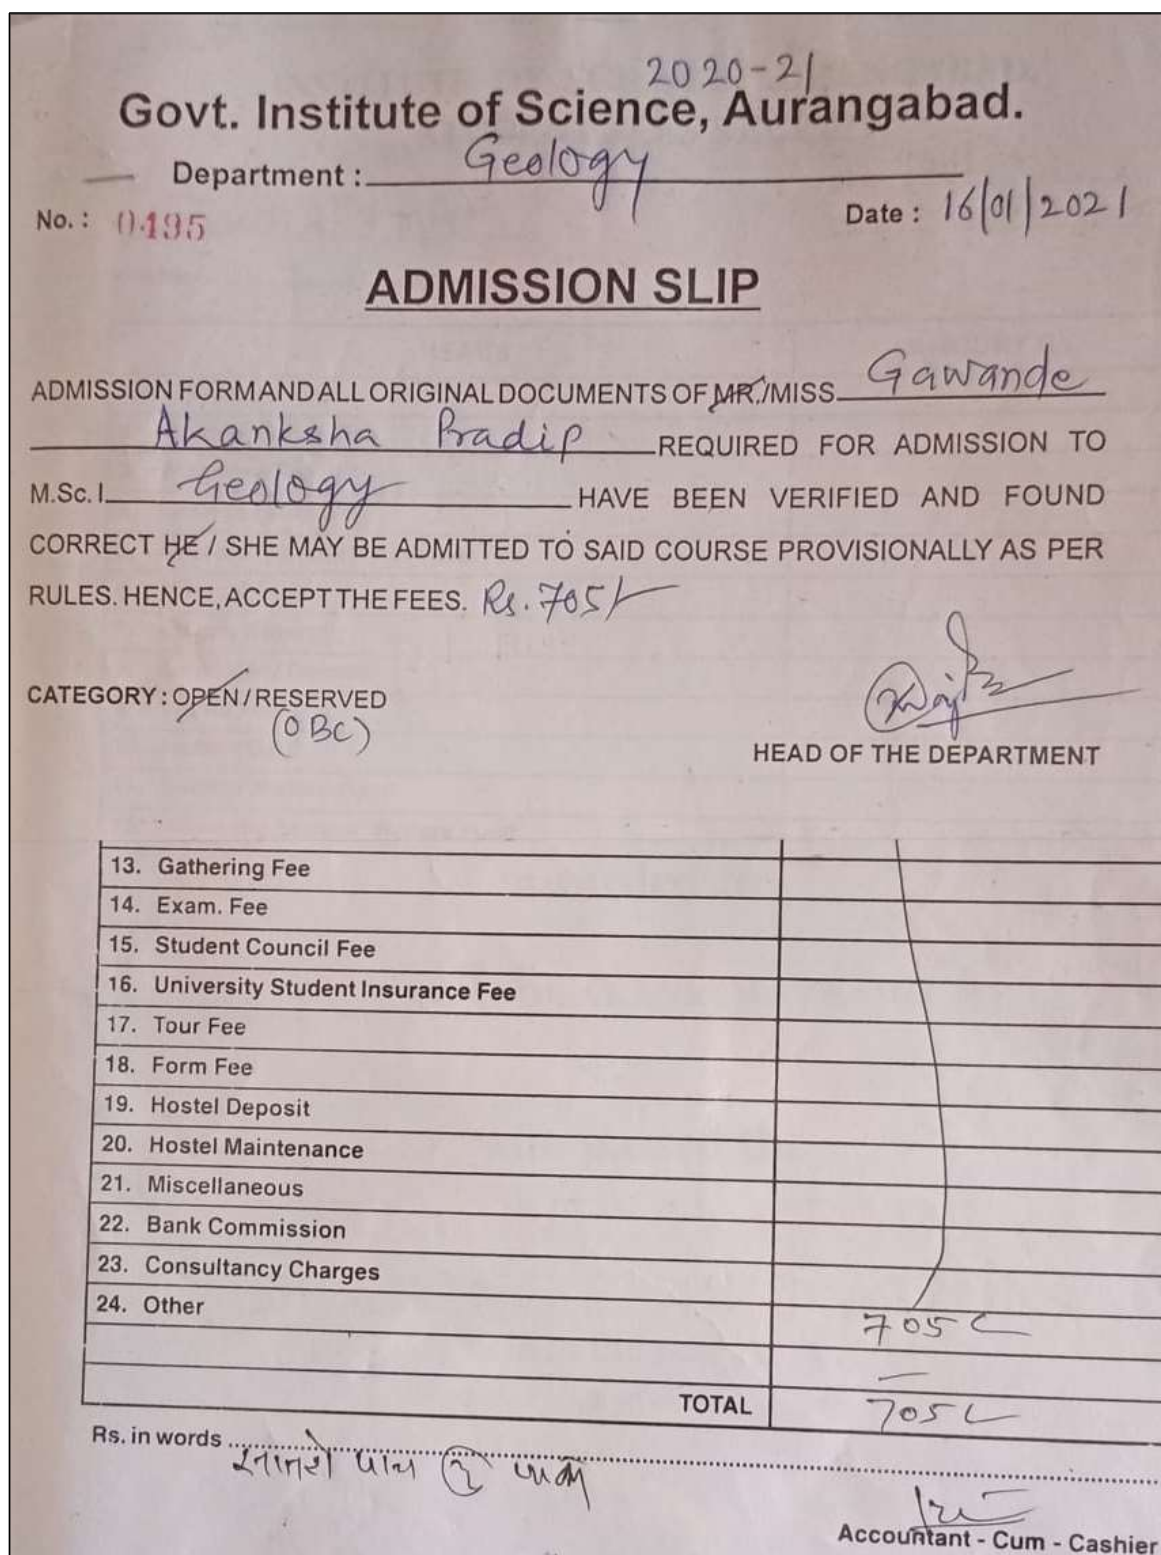 2020-21
Govt. Institute of Science, Aurangabad.
Department : Geology
No. : 0495 Date : 16/01/2021
ADMISSION SLIP
ADMISSION FORM AND ALL ORIGINAL DOCUMENTS OF MR./MISS Gawande
Akanksha Pradip REQUIRED FOR ADMISSION TO
M.Sc. I Geology HAVE BEEN VERIFIED AND FOUND
CORRECT HE / SHE MAY BE ADMITTED TO SAID COURSE PROVISIONALLY AS PER
RULES. HENCE, ACCEPT THE FEES. Rs. 705/-
CATEGORY : OPEN / RESERVED
(OBC)
HEAD OF THE DEPARTMENT
13. Gathering Fee
14. Exam. Fee
15. Student Council Fee
16. University Student Insurance Fee
17. Tour Fee
18. Form Fee
19. Hostel Deposit
20. Hostel Maintenance
21. Miscellaneous
22. Bank Commission
23. Consultancy Charges
24. Other 705/-
TOTAL 705/-
Rs. in words सातशे पाच रु
Accountant - Cum - Cashier